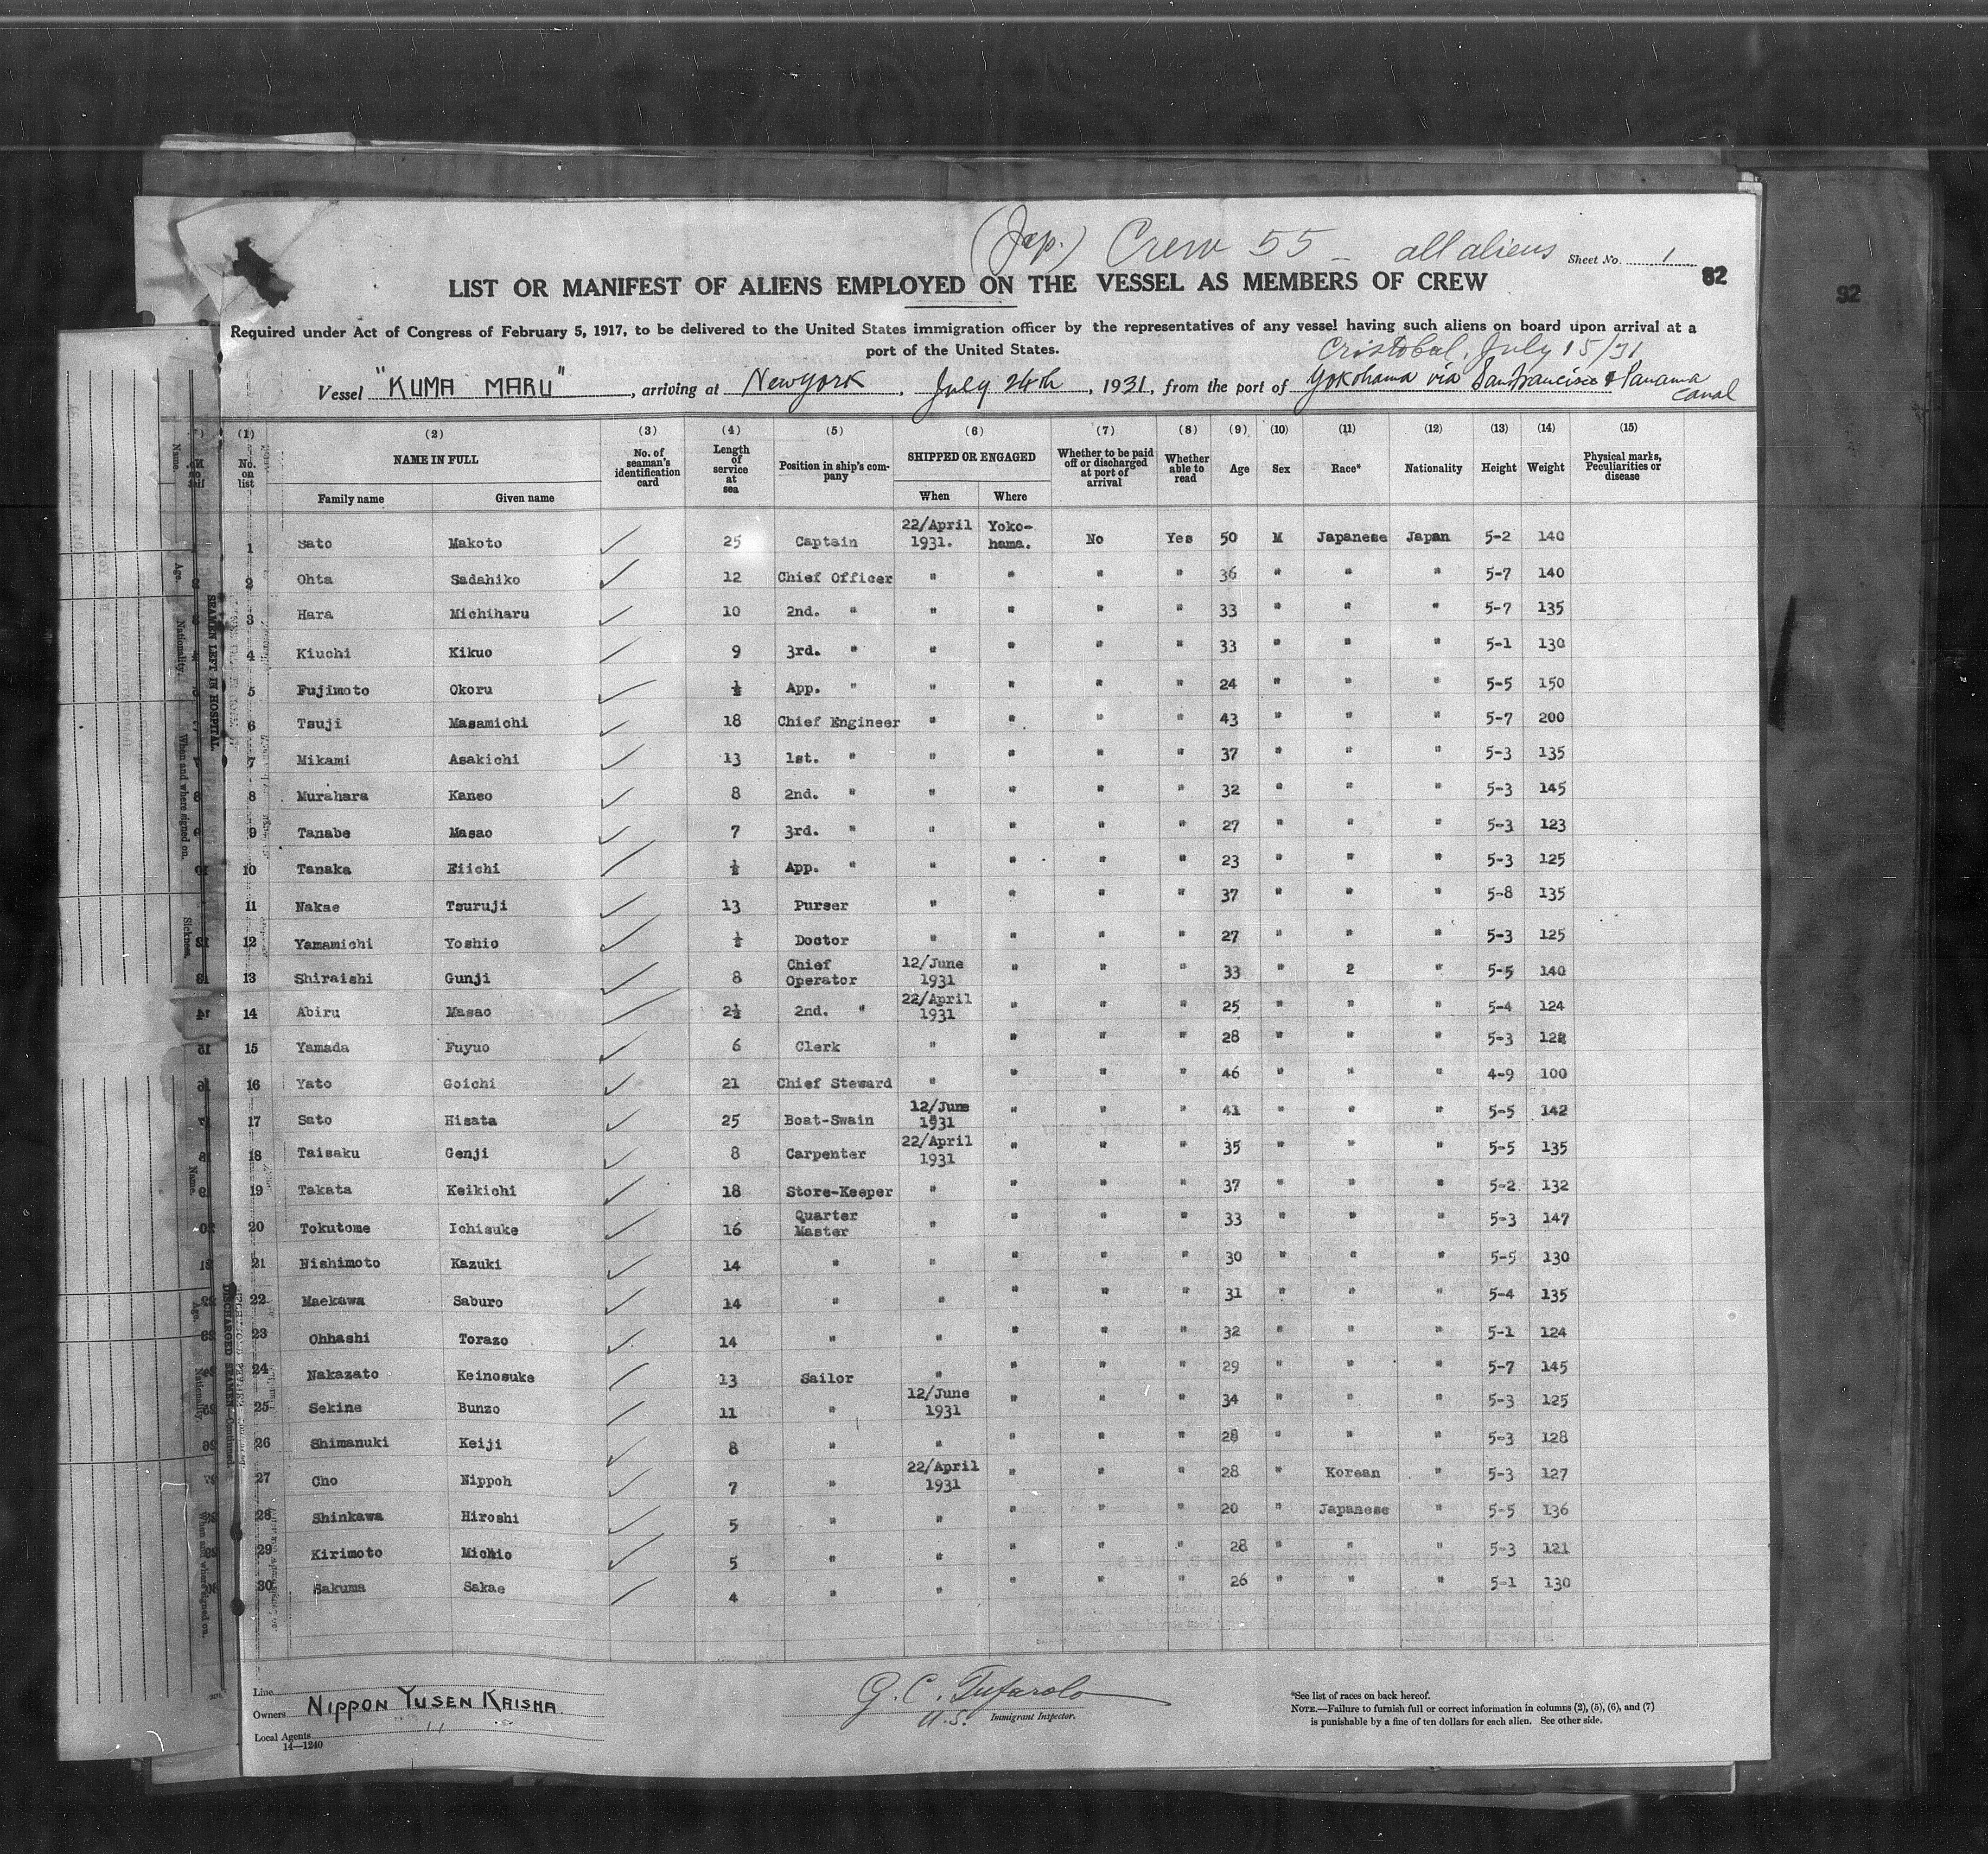 (Jap.) Crew 55 - all aliens Sheet No. 1
LIST OR MANIFEST OF ALIENS EMPLOYED ON THE VESSEL AS MEMBERS OF CREW 82
92
Required under Act of Congress of February 5, 1917, to be delivered to the United States immigration officer by the representatives of any vessel having such aliens on board upon arrival at a
port of the United States.
Cristobal, July 15/31
Vessel "KUMA MARU", arriving at New York, July 24th, 1931, from the port of Yokohama via San Francisco & Panama
Canal
(1) (2) (3) (4) (5) (6) (7) (8) (9) (10) (11) (12) (13) (14) (15)
No. on list NAME IN FULL No. of seaman's identification card Length of service at sea Position in ship's company SHIPPED OR ENGAGED Whether to be paid off or discharged at port of arrival Whether able to read Age Sex Race* Nationality Height Weight Physical marks, Peculiarities or disease
Family name Given name When Where
1 Sato Makoto 25 Captain 22/April 1931. Yoko-hama. No Yes 50 M Japanese Japan 5-2 140
2 Ohta Sadahiko 12 Chief Officer " " " " 36 " " " 5-7 140
3 Hara Michiharu 10 2nd. " " " " " 33 " " " 5-7 135
4 Kiuchi Kikuo 9 3rd. " " " " " 33 " " " 5-1 130
5 Fujimoto Okoru ½ App. " " " " " 24 " " " 5-5 150
6 Tsuji Masamichi 18 Chief Engineer " " " " 43 " " " 5-7 200
7 Mikami Asakichi 13 1st. " " " " " 37 " " " 5-3 135
8 Murahara Kaneo 8 2nd. " " " " " 32 " " " 5-3 145
9 Tanabe Masao 7 3rd. " " " " " 27 " " " 5-3 123
10 Tanaka Eiichi ½ App. " " " " " 23 " " " 5-3 125
11 Nakae Tsuruji 13 Purser " " " " 37 " " " 5-8 135
12 Yamamichi Yoshio ½ Doctor " " " " 27 " " " 5-3 125
13 Shiraishi Gunji 8 Chief Operator 12/June 1931 " " " 33 " 2 " 5-5 140
14 Abiru Masao 2½ 2nd. " 22/April 1931 " " " 25 " " " 5-4 124
15 Yamada Fuyuo 6 Clerk " " " " 28 " " " 5-3 122
16 Yato Goichi 21 Chief Steward " " " " 46 " " " 4-9 100
17 Sato Hisata 25 Boat-Swain 12/June 1931 " " " 41 " " " 5-5 142
18 Taisaku Genji 8 Carpenter 22/April 1931 " " " 35 " " " 5-5 135
19 Takata Keikichi 18 Store-Keeper " " " " 37 " " " 5-2 132
20 Tokutome Ichisuke 16 Quarter Master " " " " 33 " " " 5-3 147
21 Nishimoto Kazuki 14 " " " " " 30 " " " 5-5 130
22 Maekawa Saburo 14 " " " " " 31 " " " 5-4 135
23 Ohhashi Torazo 14 " " " " " 32 " " " 5-1 124
24 Nakazato Keinosuke 13 Sailor " " " " 29 " " " 5-7 145
25 Sekine Bunzo 11 " 12/June 1931 " " " 34 " " " 5-3 125
26 Shimanuki Keiji 8 " " " " " 28 " " " 5-3 128
27 Cho Nippoh 7 " 22/April 1931 " " " 28 " Korean " 5-3 127
28 Shinkawa Hiroshi 5 " " " " " 20 " Japanese " 5-5 136
29 Kirimoto Michio 5 " " " " " 28 " " " 5-3 121
30 Sakuma Sakae 4 " " " " " 26 " " " 5-1 130
Line
Owners NIPPON YUSEN KAISHA.
Local Agents "
14—1240
G. C. Tufarolo
U.S. Immigrant Inspector.
*See list of races on back hereof.
NOTE.—Failure to furnish full or correct information in columns (2), (5), (6), and (7)
is punishable by a fine of ten dollars for each alien. See other side.
SEAMEN LEFT IN HOSPITAL.
Name.
Age.
Nationality.
When and where signed on.
Sickness.
DISCHARGED SEAMEN—Continued.
Name.
Age.
Nationality.
When and where signed on.